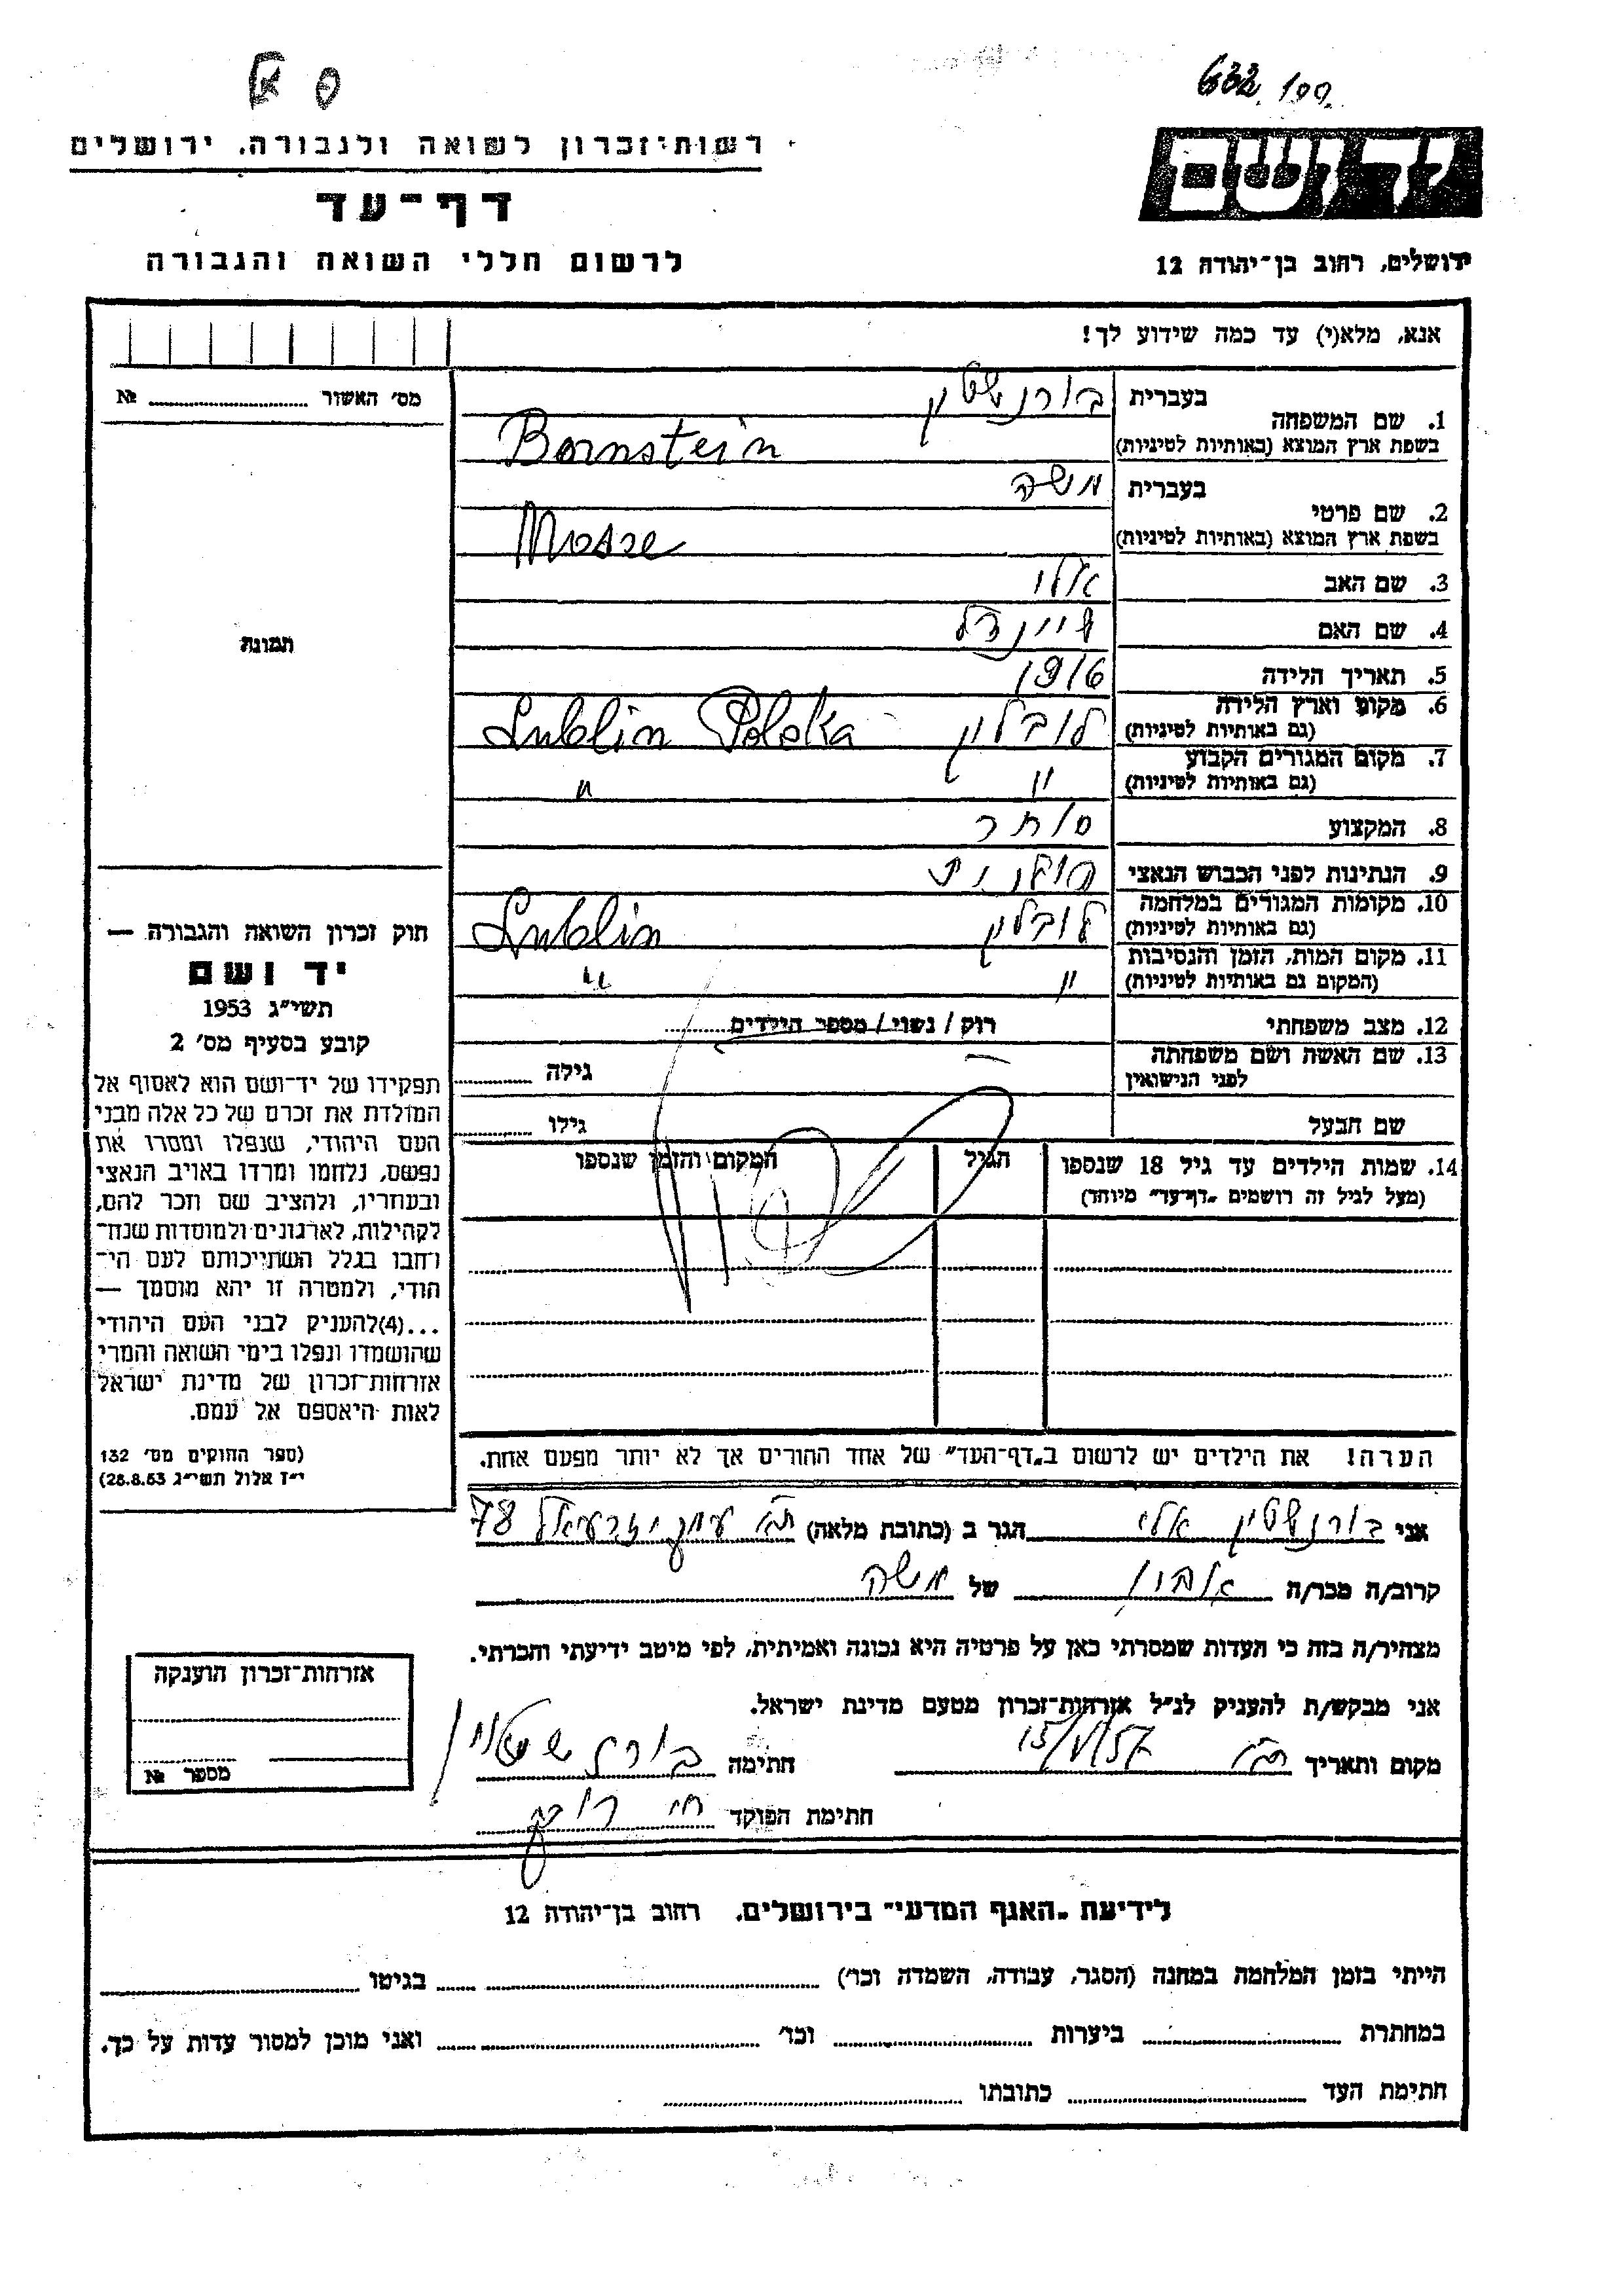 632 100
רשות־זכרון לשואה ולגבורה, ירושלים
יד ושם
דף־עד
לרשום חללי השואה והגבורה
ירושלים, רחוב בן־יהודה 12
אנא, מלא(י) עד כמה שידוע לך!
מס׳ האשור № ........
1. שם המשפחה בעברית בורנשטין
בשפת ארץ המוצא (באותיות לטיניות) Bornstein
2. שם פרטי בעברית משה
בשפת ארץ המוצא (באותיות לטיניות)
3. שם האב אלי
4. שם האם שיינדל
5. תאריך הלידה 1916
6. מקום וארץ הלידה (גם באותיות לטיניות) לובלין Lublin Polska
7. מקום המגורים הקבוע (גם באותיות לטיניות) " "
8. המקצוע סוחר
9. הנתינות לפני הכבוש הנאצי פולנית
10. מקומות המגורים במלחמה (גם באותיות לטיניות) לובלין Lublin
11. מקום המות, הזמן והנסיבות (המקום גם באותיות לטיניות) " "
12. מצב משפחתי רוק / נשוי / מספר הילדים ........
13. שם האשה ושם משפחתה לפני הנישואין — גילה ........
שם הבעל גילו ........
14. שמות הילדים עד גיל 18 שנספו הגיל המקום והזמן שנספו
(מעל לגיל זה רושמים „דף־עד" מיוחד)
הערה! את הילדים יש לרשום ב„דף־העד" של אחד ההורים אך לא יותר מפעם אחת.
תמונה
חוק זכרון השואה והגבורה —
יד ושם
תשי״ג 1953
קובע בסעיף מס׳ 2
תפקידו של יד־ושם הוא לאסוף אל
המולדת את זכרם של כל אלה מבני
העם היהודי, שנפלו ומסרו את
נפשם, נלחמו ומרדו באויב הנאצי
ובעוזריו, ולהציב שם וזכר להם,
לקהילות, לארגונים ולמוסדות שנח־
רבו בגלל השתייכותם לעם הי־
הודי, ולמטרה זו יהא מוסמך —
...(4)להעניק לבני העם היהודי
שהושמדו ונפלו בימי השואה והמרי
אזרחות־זכרון של מדינת ישראל
לאות היאספם אל עמם.
(ספר החוקים מס׳ 132
י״ז אלול תשי״ג 28.8.53)
אני בורנשטין אלי הגר ב (כתובת מלאה) ת״א עמק יזרעאל 78
קרוב/ה מכר/ה של משה
מצהיר/ה בזה כי העדות שמסרתי כאן על פרטיה היא נכונה ואמיתית, לפי מיטב ידיעתי והכרתי.
אני מבקש/ת להעניק לנ״ל אזרחות־זכרון מטעם מדינת ישראל.
מקום ותאריך ת״א 15/V/57 חתימה
חתימת הפוקד
אזרחות־זכרון הוענקה
מספר №
לידיעת „האגף המדעי" בירושלים, רחוב בן־יהודה 12
הייתי בזמן המלחמה במחנה (הסגר, עבודה, השמדה וכו׳) ........ בגיטו ........
במחתרת ........ ביערות ........ וכו׳ ........ ואני מוכן למסור עדות על כך.
חתימת העד ........ כתובתו ........